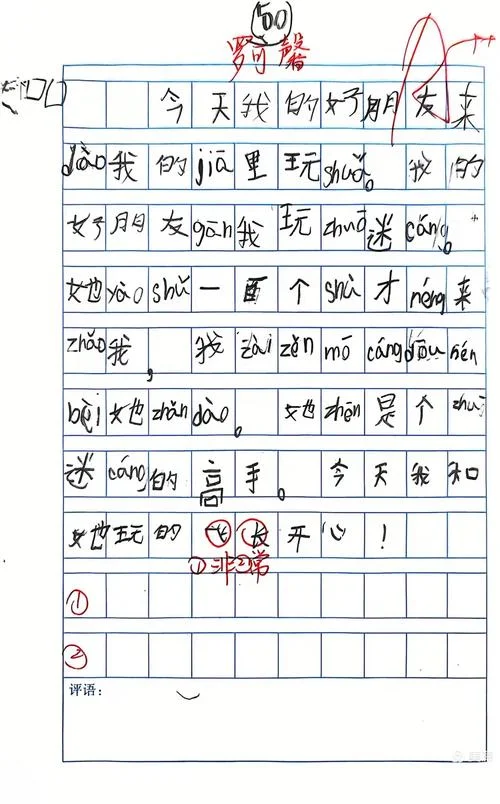 50
罗可馨 A++
今天我的好朋友来
dào我的jiā里玩shuǎ。我的
好朋友gān我玩zhuō迷cáng。
她yào shǔ一百个shù才néng来
zhǎo我，我zài zěn mō cáng dōu nén
bèi她zhǎn dào。她zhēn是个zhuō
迷cáng的高手。今天我和
她玩的飞长开心！
①非②常
①
②
评语：